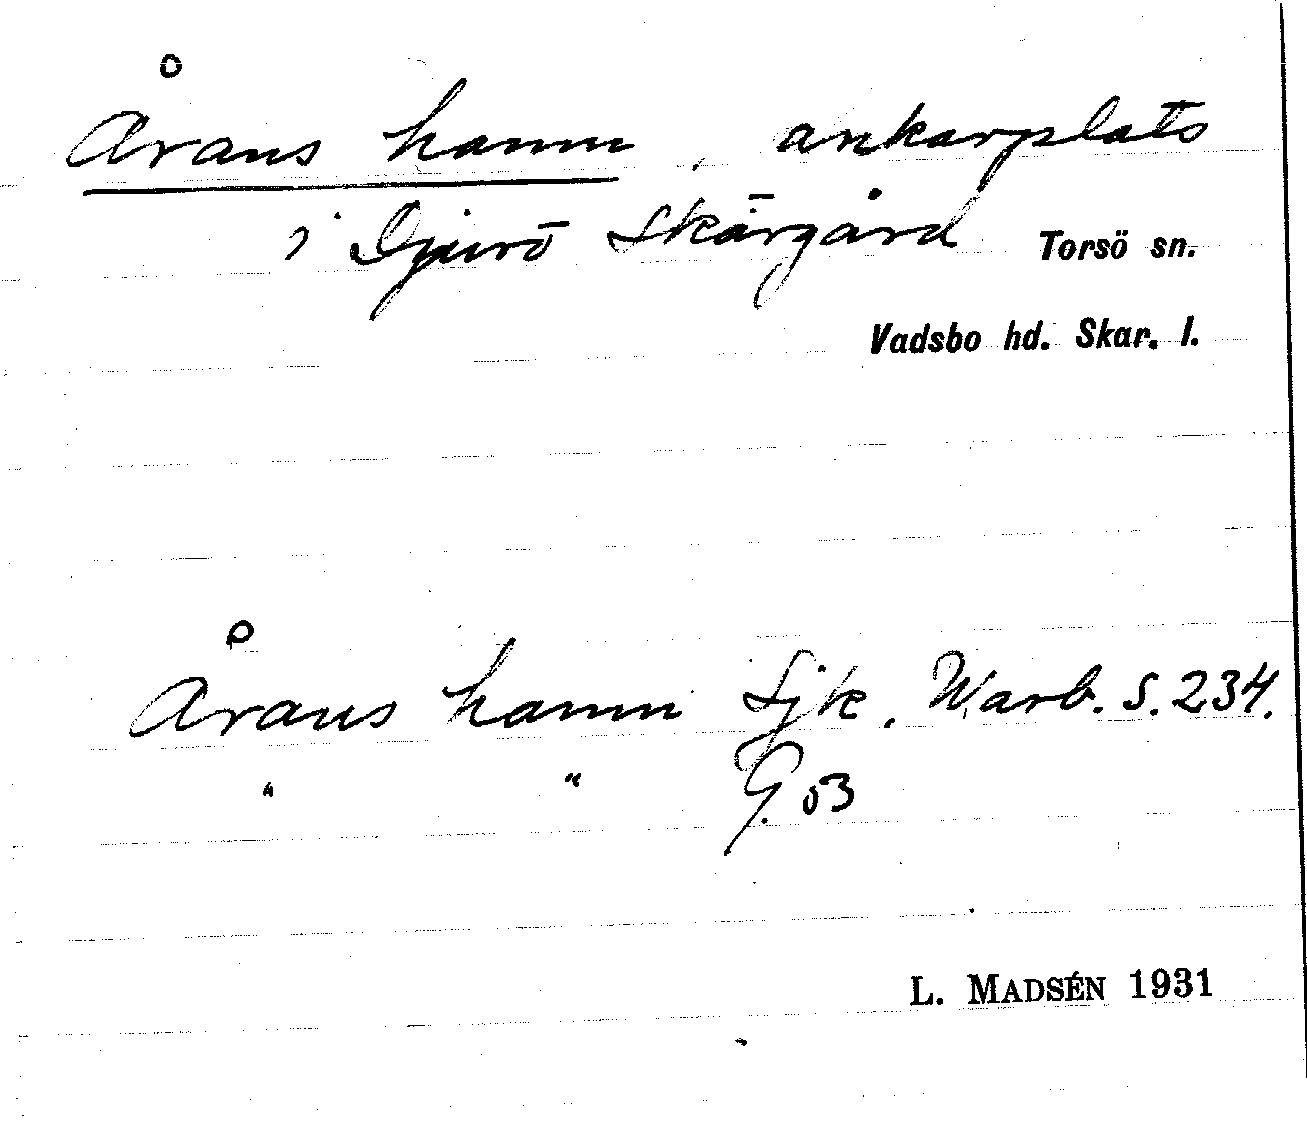 Årans hamn, ankarplats
i Djurö Skärgård Torsö sn.
Vadsbo hd. Skar. l.
Årans hamn Sjk. Warb. S. 234.
" " G. 53
L. MADSÉN 1931